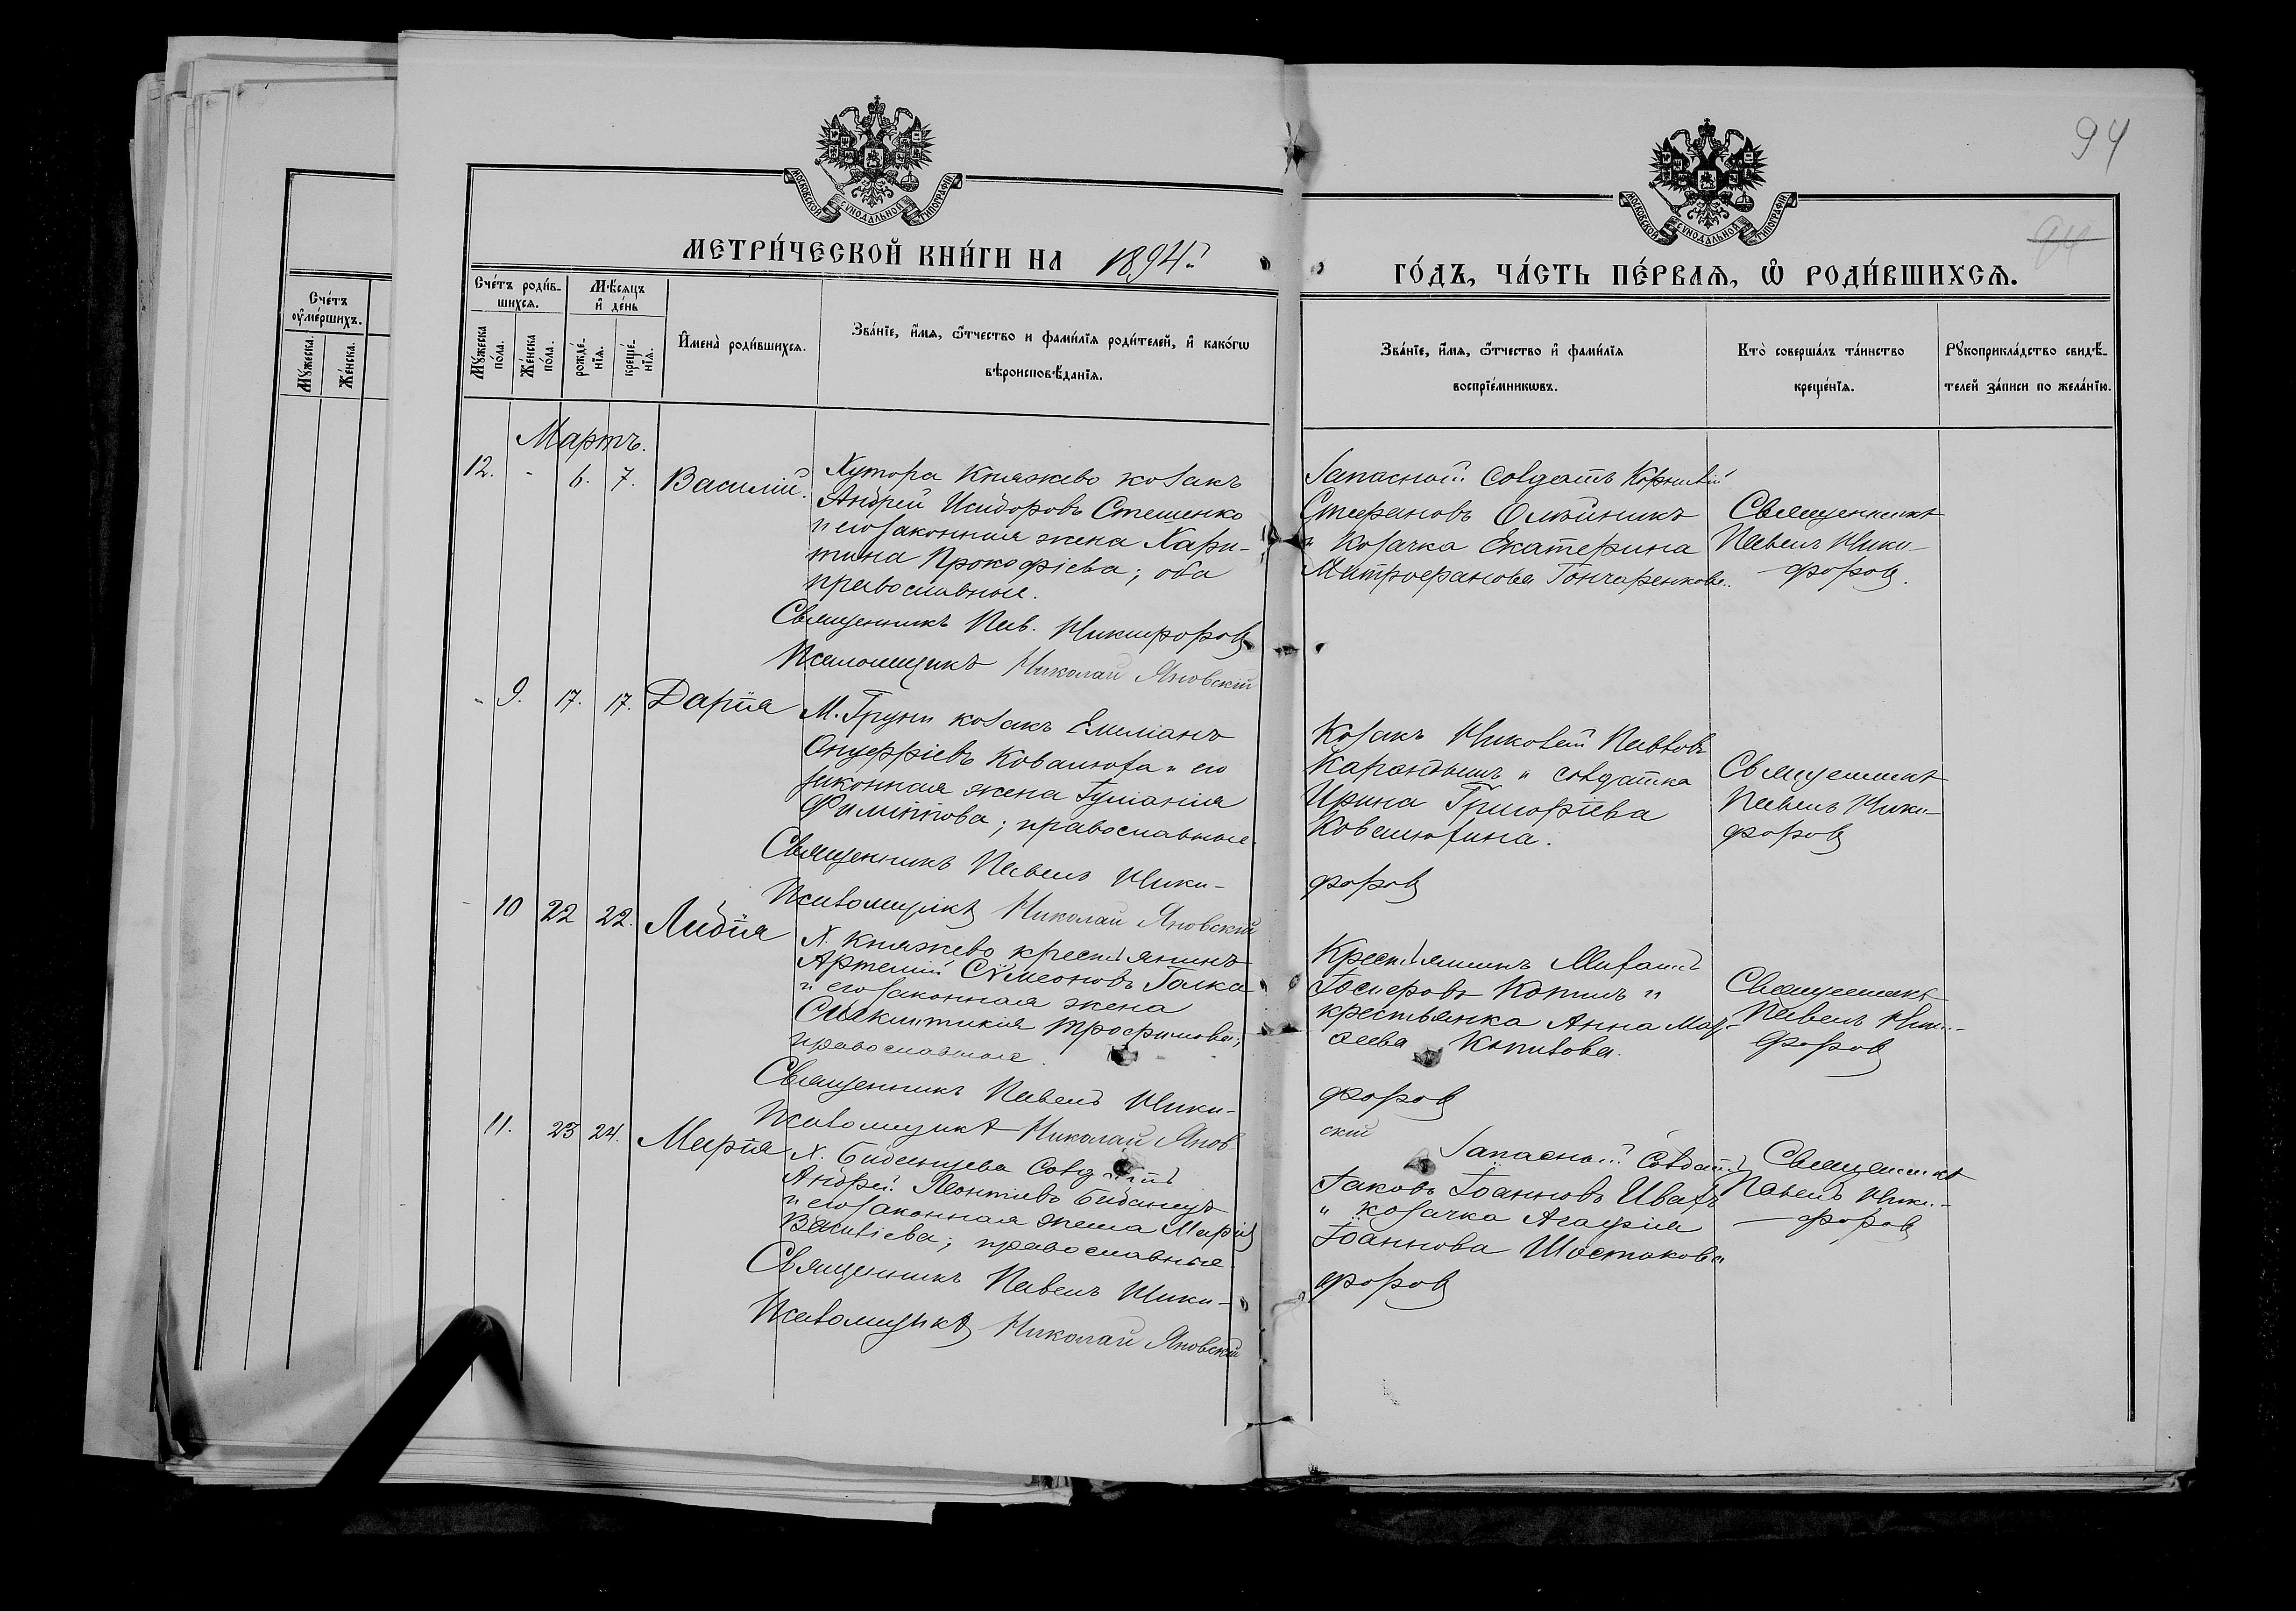 94
94
МОСКОВСКОЙ СѴНОДАЛЬНОЙ ТИПОГРАФІИ
МОСКОВСКОЙ СѴНОДАЛЬНОЙ ТИПОГРАФІИ
МЕТРИ́ЧЕСКОЙ КНИ́ГИ НА 1894й
ГО́ДЪ, ЧА́СТЬ ПЕ́РВАЯ, Ѡ РОДИ́ВШИХСЯ.
Сче́тъ оумершихъ.
Мꙋжеска.
Же́нска.
Сче́тъ роди́в-
шихся.
Мꙋ́жеска по́ла.
Же́нска по́ла.
Мѣ́сяцъ
и̂ де́нь
рожде́нїя.
креще́нїя.
И̂мена̀ роди́вшихся.
Зва́нїе, и̂́мя, ѻ̂́тчество и фами́лїя роди́телей, и̂ како́гѡ
вѣроисповѣ́данїя.
Зва́нїе, и̂́мя, ѻ̂́тчество и̂ фами́лїя
воспрїе́мникѡвъ.
Кто̀ соверша́лъ та́инство
креще́нїя.
Рꙋкоприкла́дство свидѣ́-
телей за́писи по жела́нїю.
Мартъ.
12. - 6. 7. Василій.
Хутора Княжево козакъ
Андрей Исидоровъ Стешенко
и его законная жена Хари-
тина Прокофіева; оба
православные.
Священникъ Пав. Никифоров
Псаломщикъ Николай Яновскій
Запасный солдатъ Корнилій
Стефановъ Олѣйникъ
и козачка Екатерина
Митрофанова Гончаренкова.
Священникъ
Павелъ Ники-
форов.
- 9. 17. 17. Дарія
М. Груни козакъ Емиліанъ
Онуфріевъ Ковалюга и его
законная жена Іуліанія
Филиппова; православные.
Священникъ Павелъ Ники-
форов
Псаломщикъ Николай Яновскій
Козакъ Николай Павловъ
Карандышъ и солдатка
Ирина Григоріева
Ковалюгина.
Священникъ
Павелъ Ники-
форов
- 10 22 22. Лидія
Х. Княжево крестьянинъ
Артемій Сѵмеоновъ Галка
и его законная жена
Синклитикія Трофимова;
православные.
Священникъ Павелъ Ники-
форов
Псаломщикъ Николай Янов
скій
Крестьянинъ Михаилъ
Іосифовъ Копылъ и
крестьянка Анна
Копылова.
Священникъ
Павелъ Ники-
форов
11. 23 24. Марія
Х. Биданцева Солдатъ
Андрей Леонтіевъ Биданецъ
и его законная жена Марія
Василіева; православные
Священникъ Павелъ Ники-
форов
Псаломщикъ Николай Яновскій
Запасный Солдатъ
Іаковъ Іоанновъ Ивахъ
и козачка Агафія
Іоаннова Шостакова
Священникъ
Павелъ Ники-
форов